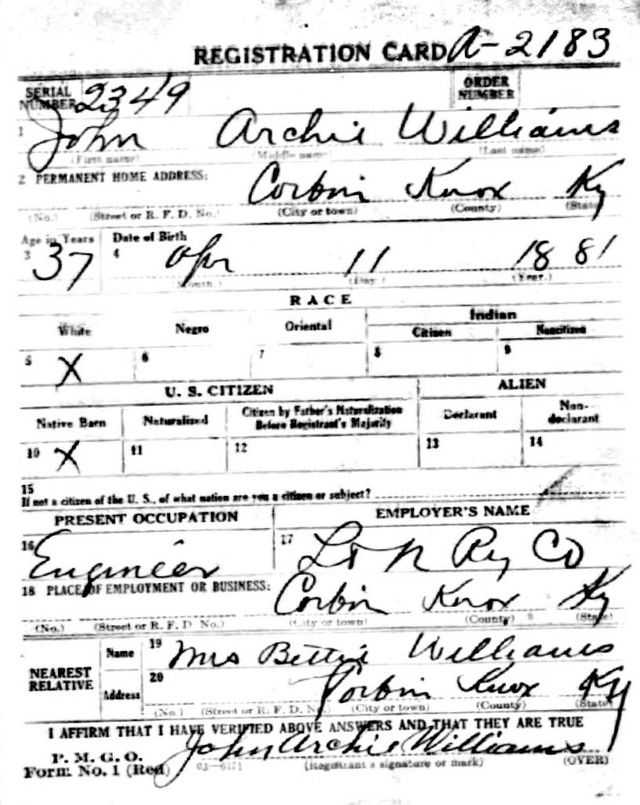 REGISTRATION CARD A-2183
SERIAL NUMBER 2349 ORDER NUMBER
1 John Archie Williams
(First name) (Middle name) (Last name)
2 PERMANENT HOME ADDRESS: Corbin Knox Ky
(No.) (Street or R. F. D. No.) (City or town) (County) (State)
Age in Years Date of Birth
3 37 4 Apr 11 1881
(Month) (Day) (Year.)
RACE
White Negro Oriental Indian
Citizen Noncitizen
5 X 6 7 8 9
U. S. CITIZEN ALIEN
Native Born Naturalized Citizen by Father's Naturalization Before Registrant's Majority Declarant Non-declarant
10 X 11 12 13 14
15
If not a citizen of the U. S., of what nation are you a citizen or subject?
PRESENT OCCUPATION EMPLOYER'S NAME
16 Engineer 17 L & N Ry Co
18 PLACE OF EMPLOYMENT OR BUSINESS: Corbin Knox Ky
(No.) (Street or R. F. D. No.) (City or town) (County) (State)
NEAREST RELATIVE Name 19 Mrs Bettie Williams
Address 20 Corbin Knox Ky
(No.) (Street or R. F. D. No.) (City or town) (County) (State)
I AFFIRM THAT I HAVE VERIFIED ABOVE ANSWERS AND THAT THEY ARE TRUE
P. M. G. O. John Archie Williams
Form No. 1 (Red) 03-6171 (Registrant's signature or mark) (OVER)